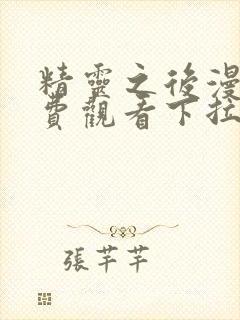 精靈之後漫
費觀看下拉
張芊芊